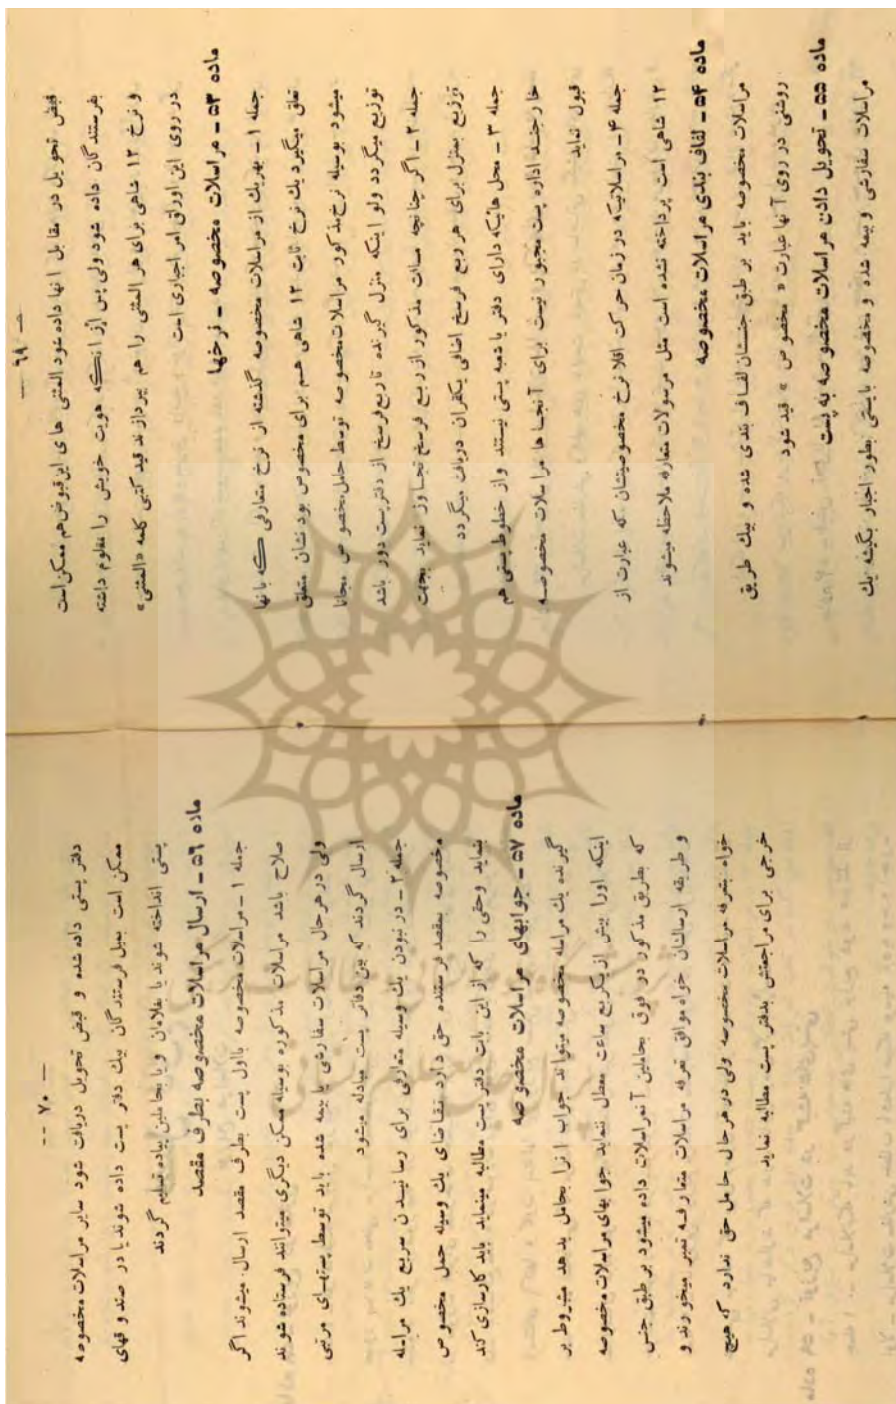 — ٦٩ —
قبض تحویل در مقابل انها داده شود المثنی های این قبوض هم ممکن است
بفرستندگان داده شود ولی پس از انکه هویت خویش را معلوم داشته
و نرخ ۱۲ شاهی برای هر المثنی را هم بپردازند قید کتبی کلمه «المثنی»
در روی این اوراق امر اجباری است
ماده ۵۳ ـ مراسلات مخصوصه ـ نرخها
جمله ۱ ـ بهریك از مراسلات مخصوصه گذشته از نرخ متعارفی که بانها
تعلق میگیرد یك نرخ ثابت ۱۲ شاهی هم برای مخصوص بودنشان متعلق
میشود بوسیله نرخ مذکور مراسلات مخصوصه توسط حامل مخصوص مجانا
توزیع میگردد ولو اینکه منزل گیرنده تا ربع فرسخ از دفتر پست دور باشد
جمله ۲ ـ اگر چنانچه مسافت مذکور از ربع فرسخ تجاوز نماید بجهت
توزیع بمنزل برای هر ربع فرسخ اضافی یکقران دریافت میگردد
جمله ۳ ـ محل هائیکه دارای دفتر یا شعبه پستی نیستند و از خطوط پستی هم
خارجند اداره پست مجبور نیست برای آنجاها مراسلات مخصوصه
قبول نماید
جمله ۴ ـ مراسلاتیکه در زمان حرکت اقلا نرخ مخصوصیتشان که عبارت از
۱۲ شاهی است پرداخته نشده است مثل مرسولات متعارفه ملاحظه میشوند
ماده ۵۴ ـ لفاف بندی مراسلات مخصوصه
مراسلات مخصوصه باید بر طبق جنسشان لفاف بندی شده و بیك طریق
روشنی در روی آنها عبارت « مخصوص » قید شود
ماده ۵۵ ـ تحویل دادن مراسلات مخصوصه به پست
مراسلات سفارشی و بیمه شده و مخصوصه بایستی بطور اجبار بگیشه یك
— ۷۰ —
دفتر پستی داده شده و قبض تحویل دریافت شود سایر مراسلات مخصوصه
ممکن است بمیل فرستندگان بیك دفتر پست داده شوند یا در صندوقهای
پستی انداخته شوند یا بغلامان و یا بحاملین پیاده تسلیم گردند
ماده ۵٦ ـ ارسال مراسلات مخصوصه بطرف مقصد
جمله ۱ ـ مراسلات مخصوصه بااول پست بطرف مقصد ارسال میشوند اگر
صلاح باشد مراسلات مذکوره بوسیله ممکن دیگری میتوانند فرستاده شوند
ولی در هرحال مراسلات سفارشی یا بیمه شده باید توسط پستهای مرتبی
ارسال گردند که بین دفاتر پست مبادله میشود
جمله ۲ ـ در نبودن یك وسیله متعارفی برای رسانیدن سریع یك مراسله
مخصوصه بمقصد فرستنده حق دارد تقاضای یك وسیله حمل مخصوص
بنماید وحقی را که از این بابت دفتر پست مطالبه مینماید باید کارسازی کند
ماده ۵۷ ـ جوابهای مراسلات مخصوصه
گیرنده یك مراسله مخصوصه میتواند جواب انرا بحامل بدهد مشروط بر
اینکه اورا بیش از یکربع ساعت معطل ننماید جوابهای مراسلات مخصوصه
که بطریق مذکور در فوق بحاملین آنمراسلات داده میشود بر طبق جنس
و طریقه ارسالشان خواه موافق تعرفه مراسلات متعارفه تمبر میخورند و
خواه بتعرفه مراسلات مخصوصه ولی در هرحال حامل حق ندارد که هیچ
خرجی برای مراجعتش بدفتر پست مطالبه نماید